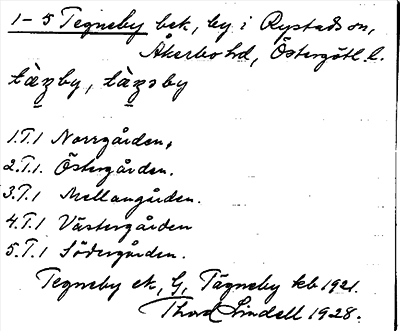 1-5 Tegneby bek, by i Rystads sn,
Åkerbo hd, Östergötl. l.
tàṉby, tàṉəby
1.T.1 Norrgården,
2.T.1. Östergården.
3.T.1 Mellangården.
4.T.1 Västergården
5.T.1 Södergården.
Tegneby ek, G, Tägneby kb 1921.
Thord Lindell 1928.